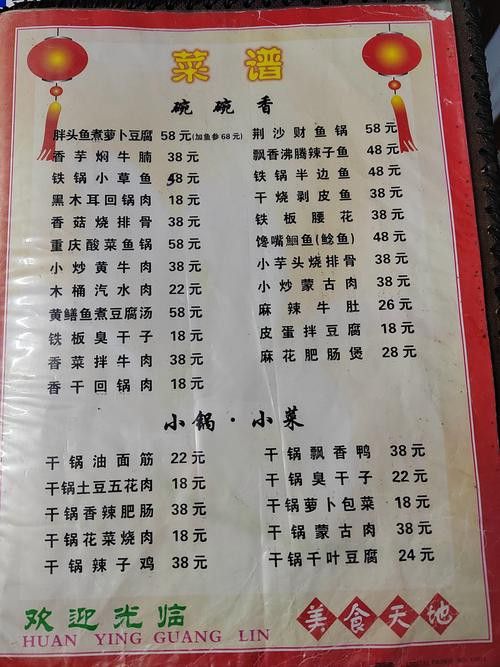 菜谱
碗碗香
胖头鱼煮萝卜豆腐 58元(加鱼参68元)
香芋焖牛腩 38元
铁锅小草鱼 48元
黑木耳回锅肉 18元
香菇烧排骨 38元
重庆酸菜鱼锅 58元
小炒黄牛肉 38元
木桶汽水肉 22元
黄鳝鱼煮豆腐汤 58元
铁板臭干子 18元
香菜拌牛肉 38元
香干回锅肉 18元
荆沙财鱼锅 58元
飘香沸腾辣子鱼 48元
铁锅半边鱼 48元
干烧剥皮鱼 38元
铁板腰花 38元
馋嘴鮰鱼(鲶鱼) 48元
小芋头烧排骨 38元
小炒蒙古肉 38元
麻辣牛肚 26元
皮蛋拌豆腐 18元
麻花肥肠煲 28元
小锅·小菜
干锅油面筋 22元
干锅土豆五花肉 18元
干锅香辣肥肠 38元
干锅花菜烧肉 18元
干锅辣子鸡 38元
干锅飘香鸭 38元
干锅臭干子 22元
干锅萝卜包菜 18元
干锅蒙古肉 38元
干锅千叶豆腐 24元
欢迎光临
HUAN YING GUANG LIN
美食天地